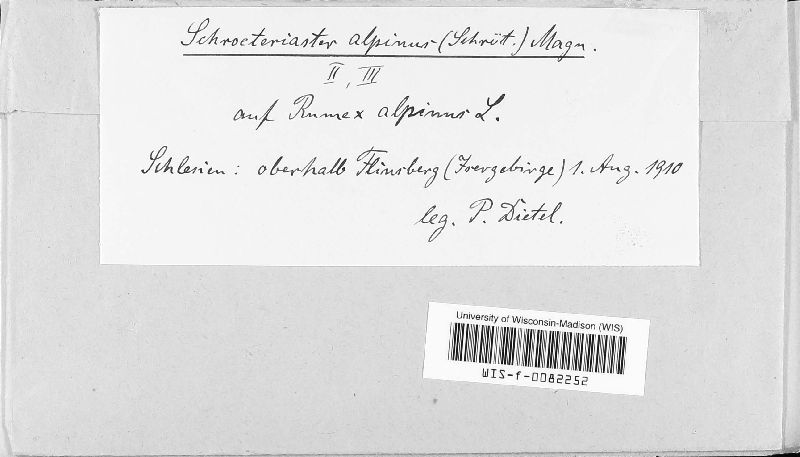 Schroeteriaster alpinus (Schröt.) Magn.
II, III
auf Rumex alpinus L.
Schlesien: oberhalb Flinsberg (Isergebirge) 1. Aug. 1910
leg. P. Dietel.
University of Wisconsin-Madison (WIS)
WIS-f-0082252